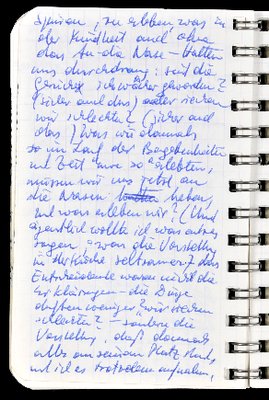 zu erleben was in
der Kindheit und ohne
das An-die Nase-halten
uns durchdrang: sind die
Gerüche schwächer geworden?
(sicher auch das) oder riechen
wir schlechter? (sicher auch
das) Was wir damals
so im Lauf der Begebenheiten
mit Zeit "nur so" erlebten,
müssen wir uns jetzt an
die Nasen halten,
und was erleben wir? (Und
eigentlich wollte ich was anderes
sagen: was die Vorstellung
in der Kirche seltsamer? das
Entscheidende waren nicht die
Erklärungen - die Dinge
duften weniger? wir riechen
schlechter? - sondern die
Vorstellung, daß damals
alles an seinem Platz stand,
und ich es trotzdem aufnahm,